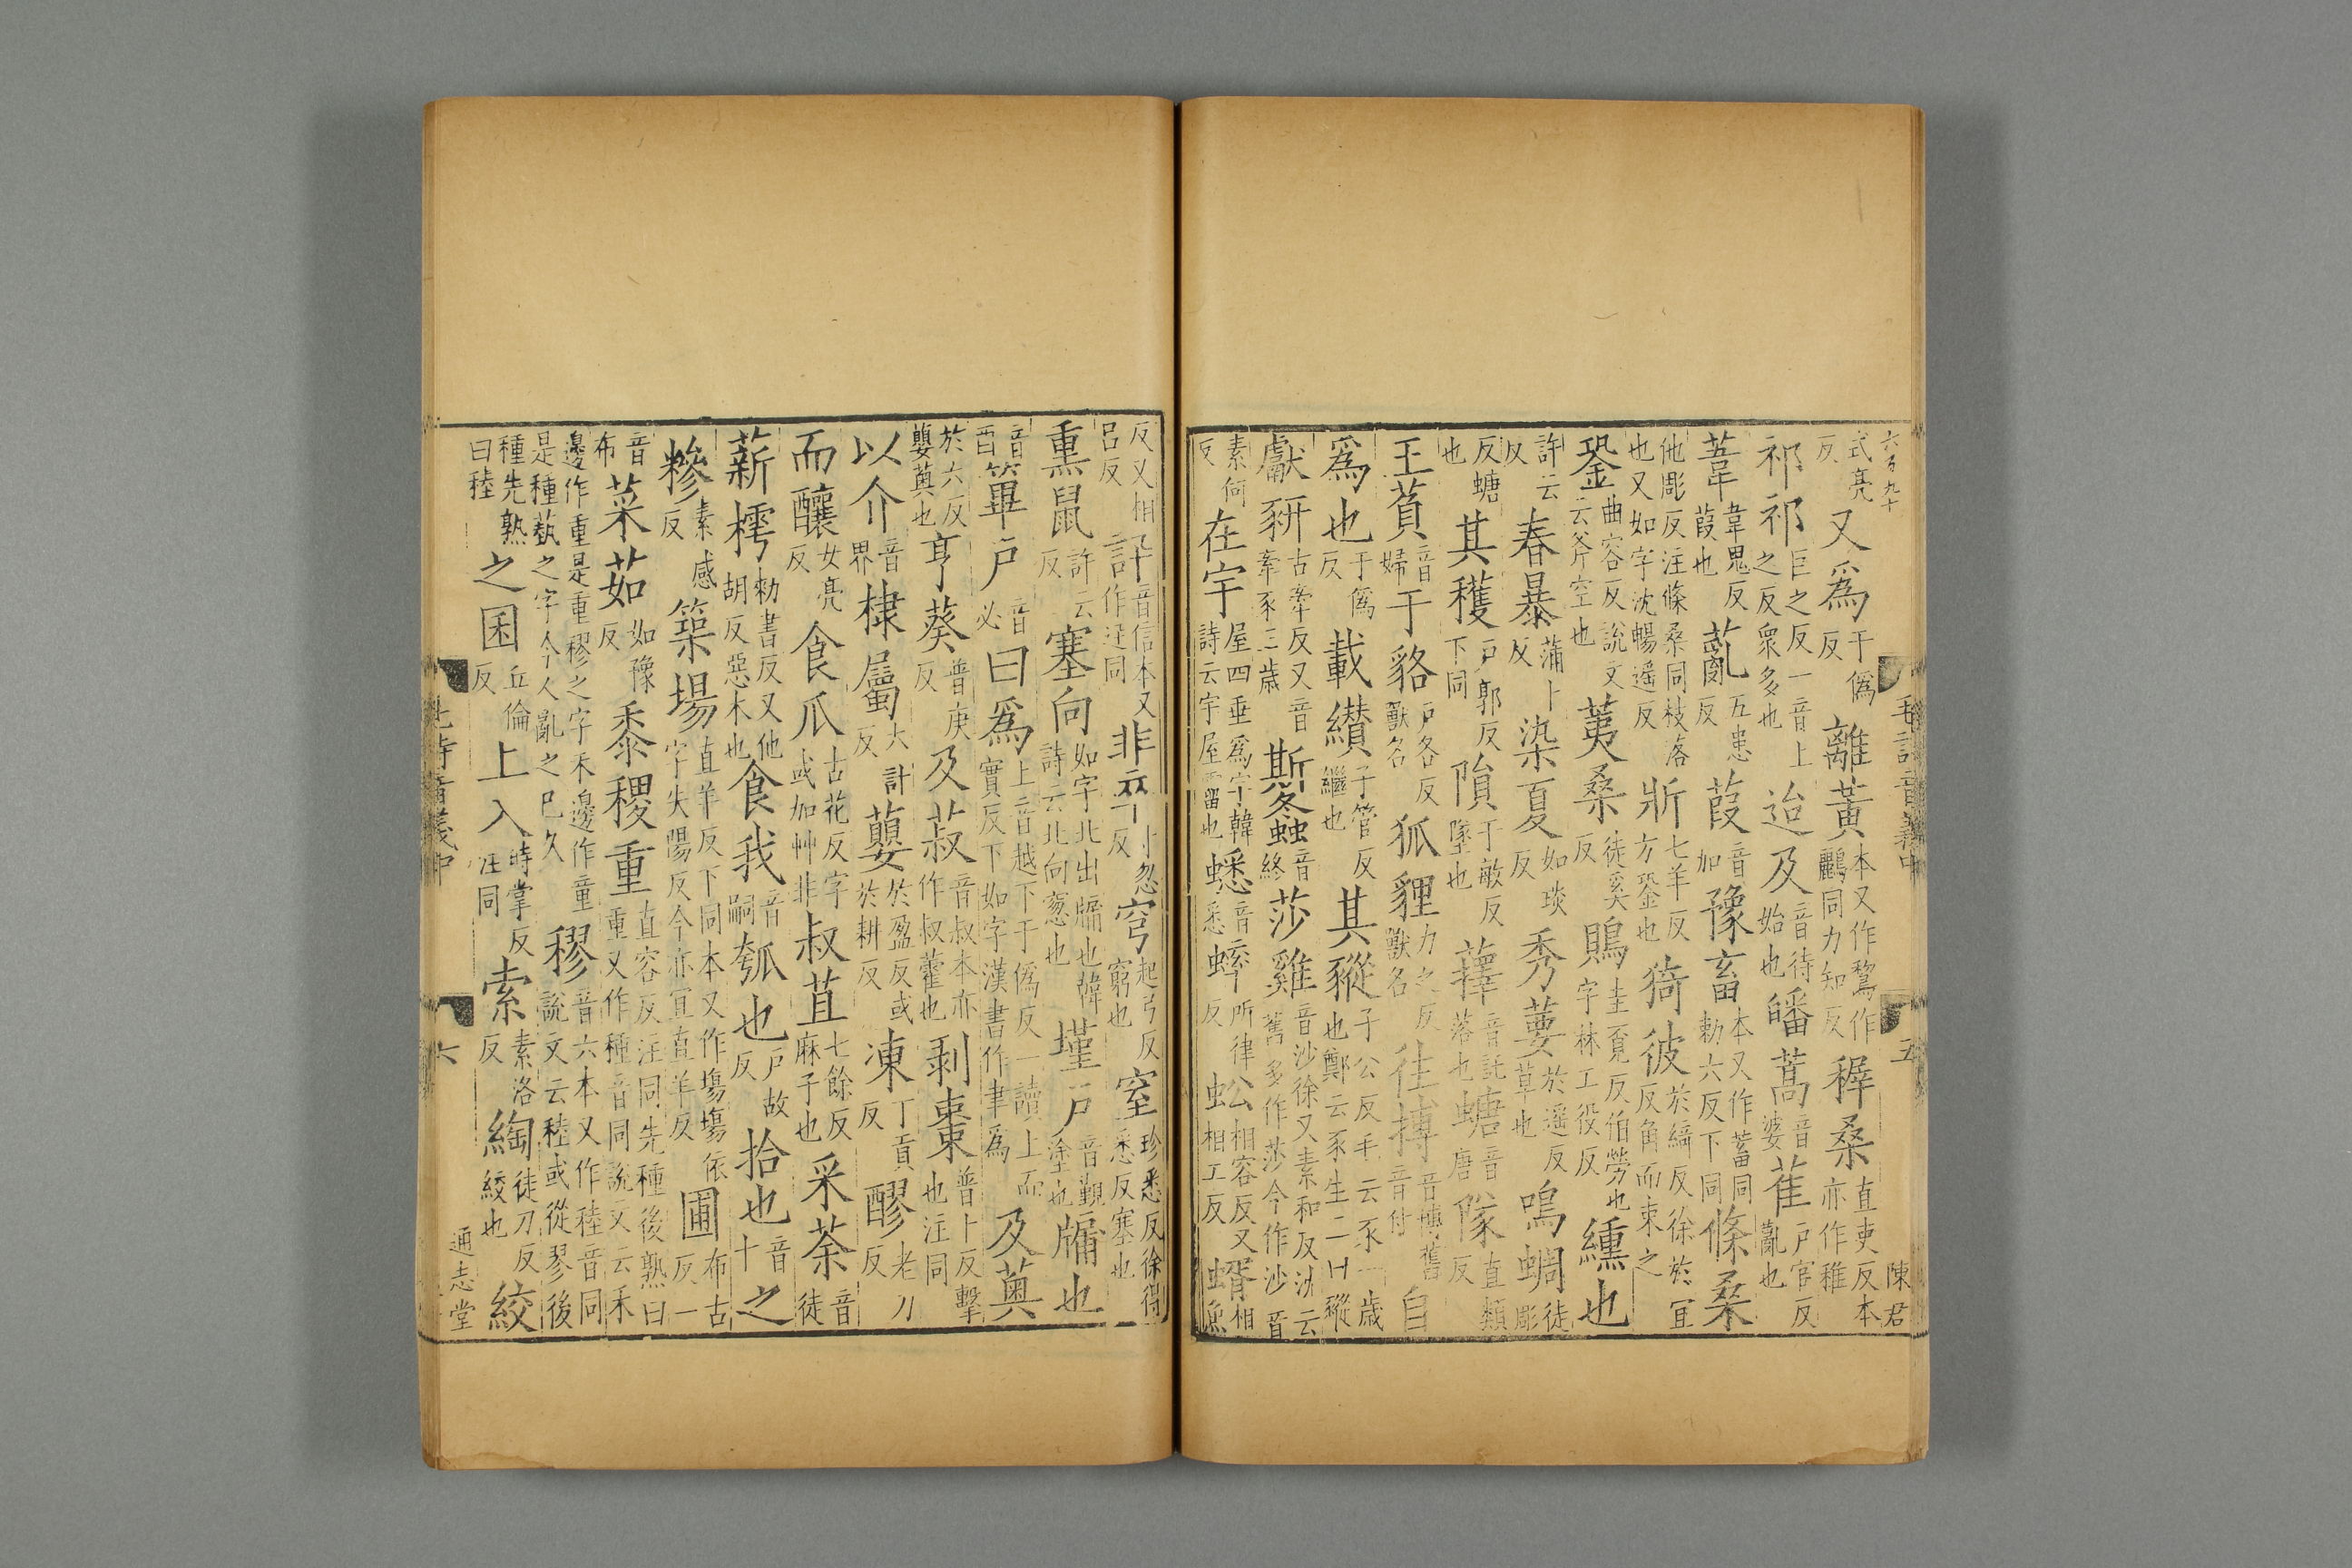 式亮反又爲于僞反離黃本又作鸎作鸝同力知反穉桑直吏反本亦作稚
祁祁巨之反一音上之反衆多也迨及音待始也皤蒿音婆萑戶官反薍也
葦韋鬼反葭也薍五患反葭音加豫畜本又作蓄同勑六反下同條桑
他彫反注條桑同枝落也又如字沈暢遥反斨七羊反方銎也猗彼於綺反徐於宜反角而束之
銎曲容反說文云斧空也荑桑徒奚反鵙圭覓反伯勞也字林工役反纁也
許云反春暴蒲卜反染夏如琰反秀葽於遥反草也鳴蜩徒彫
反螗也其穫戶郭反下同隕于敏反墜也蘀音託落也螗音唐隊直類反
于貉戶各反獸名狐貍力之反獸名往搏音博舊音付自
爲也于僞反載纘子管反繼也其豵子公反豕一歲
獻豜古牽反又音牽豕三歳斯螽音終莎雞音沙徐又素和反沈云舊多作莎今作沙音
素何反在宇屋四垂爲宇韓詩云宇屋霤也蟋音悉蟀所律反蚣相容反又相工反蝑相魚
反又相呂反
毛詩音義中
五
陳君
熏鼠許云反塞向如字北出牖也韓詩云北向窻也墐戶音覲塗也牖也
音酉篳戶音必曰爲上音越下于僞反一讀上而實反下如字漢書作聿爲及薁
於六反蘡薁也亨葵普庚反及菽音叔本亦作叔藿也剥棗普卜反擊也注同
以介音界棣屬大計反蘡於盈反或於耕反凍丁貢反醪老刀反
而釀女亮反食瓜古花反字或加艸非叔苴七餘反麻子也采荼音徒
薪樗勑書反又他胡反惡木也食我音嗣瓠也戶故反拾也音十之
糝素感反築場直羊反下同本又作塲塲依字失陽反今亦宜直羊反圃布古反一
音布菜茹如豫反黍稷重直容反注同先種後熟曰重又作種音同說文云禾
邊作重是重穋之字禾邊作童是種蓺之字今人亂之已久穋音六本又作稑音同說文云稑或從翏後
種先熟曰稑之囷丘倫反上入時掌反注同索素洛反綯徒刀反絞也絞
六
通志堂